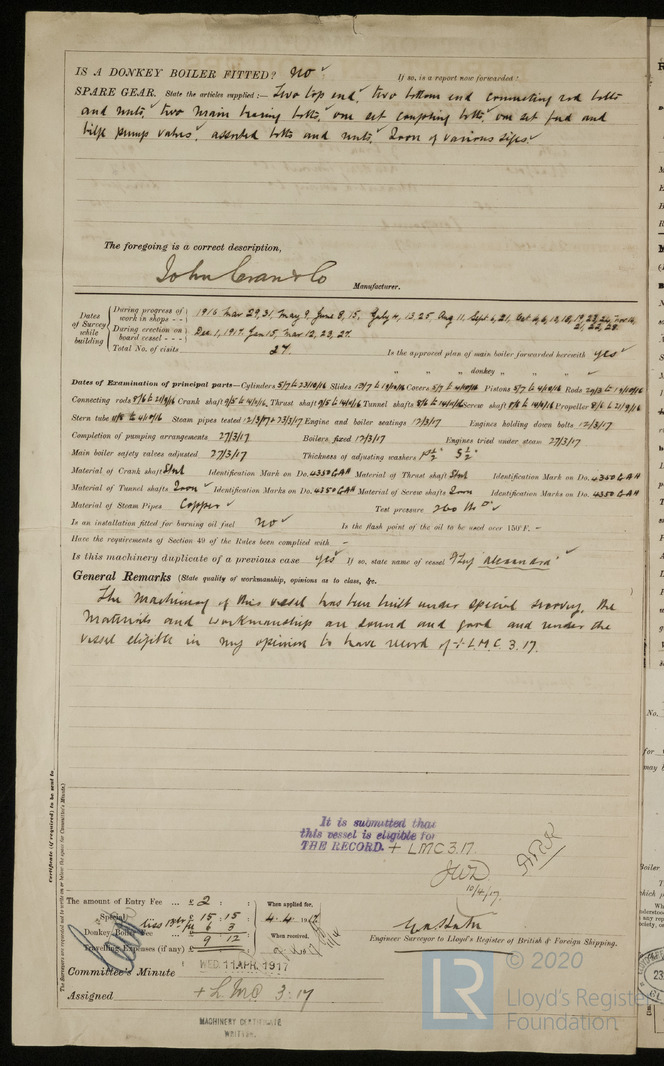 IS A DONKEY BOILER FITTED? No If so, is a report now forwarded?
SPARE GEAR. State the articles supplied:— Two top end, two bottom end connecting rod bolts
and nuts, two main bearing bolts, one set coupling bolts, one set feed and
bilge pumps valves, assorted bolts and nuts, Iron of various sizes
The foregoing is a correct description,
John Cran & Co Manufacturer.
Dates of Survey while building
During progress of work in shops - - 1916 Mar 29, 31, May 9, June 8, 15, July 4, 13, 25 Aug 11, Sept 6, 21, Oct
During erection on board vessel - - - Dec 1, 1917 Jan 15, Mar 12, 23, 27. 21, 22, 28
Total No. of visits 27. Is the approved plan of main boiler forwarded herewith yes
" " " donkey " " "
Dates of Examination of principal parts—Cylinders 5/7 to 23/10/16 Slides Covers Pistons Rods
Connecting rods Crank shaft Thrust shaft Tunnel shafts Screw shaft Propeller
Stern tube Steam pipes tested 12/3/17 + 23/3/17 Engine and boiler seatings 12/3/17 Engines holding down bolts 12/3/17
Completion of pumping arrangements 27/3/17 Boilers fixed 12/3/17 Engines tried under steam 27/3/17
Main boiler safety valves adjusted 27/3/17 Thickness of adjusting washers
Material of Crank shaft Steel Identification Mark on Do. 4350 GAH Material of Thrust shaft Steel Identification Mark on Do. 4350 GAH
Material of Tunnel shafts Iron Identification Marks on Do. 4350 GAH Material of Screw shafts Iron Identification Marks on Do. 4350 GAH
Material of Steam Pipes Copper Test pressure 260 lbs
Is an installation fitted for burning oil fuel No Is the flash point of the oil to be used over 150°F. –
Have the requirements of Section 49 of the Rules been complied with –
Is this machinery duplicate of a previous case yes If so, state name of vessel "Alexandra"
General Remarks (State quality of workmanship, opinions as to class, &c.
The machinery of this vessel has been built under special survey, the
materials and workmanship are sound and good and under the
vessel eligible in my opinion to have record of + L.M.C. 3.17.
Certificate (if required) to be sent to
The Surveyors are requested not to write on or below the space for Committee's Minute.
It is submitted that
this vessel is eligible for
THE RECORD. + LMC 3.17.
10/4/17.
The amount of Entry Fee .. £ 2 : : When applied for,
Special £ 15 : 15 4.4.1917
Donkey Boiler Fee £ 6 3 When received,
Travelling Expenses (if any) £ 9 12
Engineer Surveyor to Lloyd's Register of British & Foreign Shipping.
Committee's Minute WED. 11 APR. 1917
Assigned + LMC 3.17
MACHINERY CERTIFICATE
WRITTEN.
LR
© 2020
Lloyd's Register
Foundation